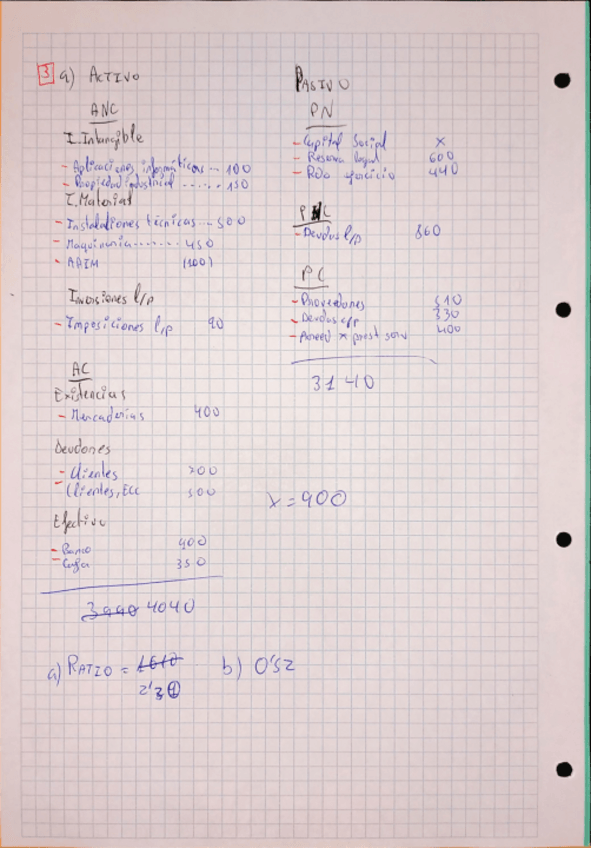 3 a) ACTIVO
ANC
I. Intangible
- Aplicaciones informáticas ... 100
- Propiedad industrial ...... 150
I. Material
- Instalaciones técnicas ... 500
- Maquinaria ....... 450
- AAIM (100)
Inversiones l/p
- Imposiciones l/p 90
AC
Existencias
- Mercaderías 400
Deudores
- Clientes 200
- Clientes, Ecc 500
Efectivo
- Banco 900
- Caja 350
3990 4040
PASIVO
PN
- Capital Social X
- Reserva legal 600
- Rdo ejercicio 440
PNC
- Deudas l/p 860
PC
- Proveedores 510
- Deudas c/p 330
- Acreed x prest serv 400
3140
X = 900
a) RATIO = 1610
2'30
b) 0'52